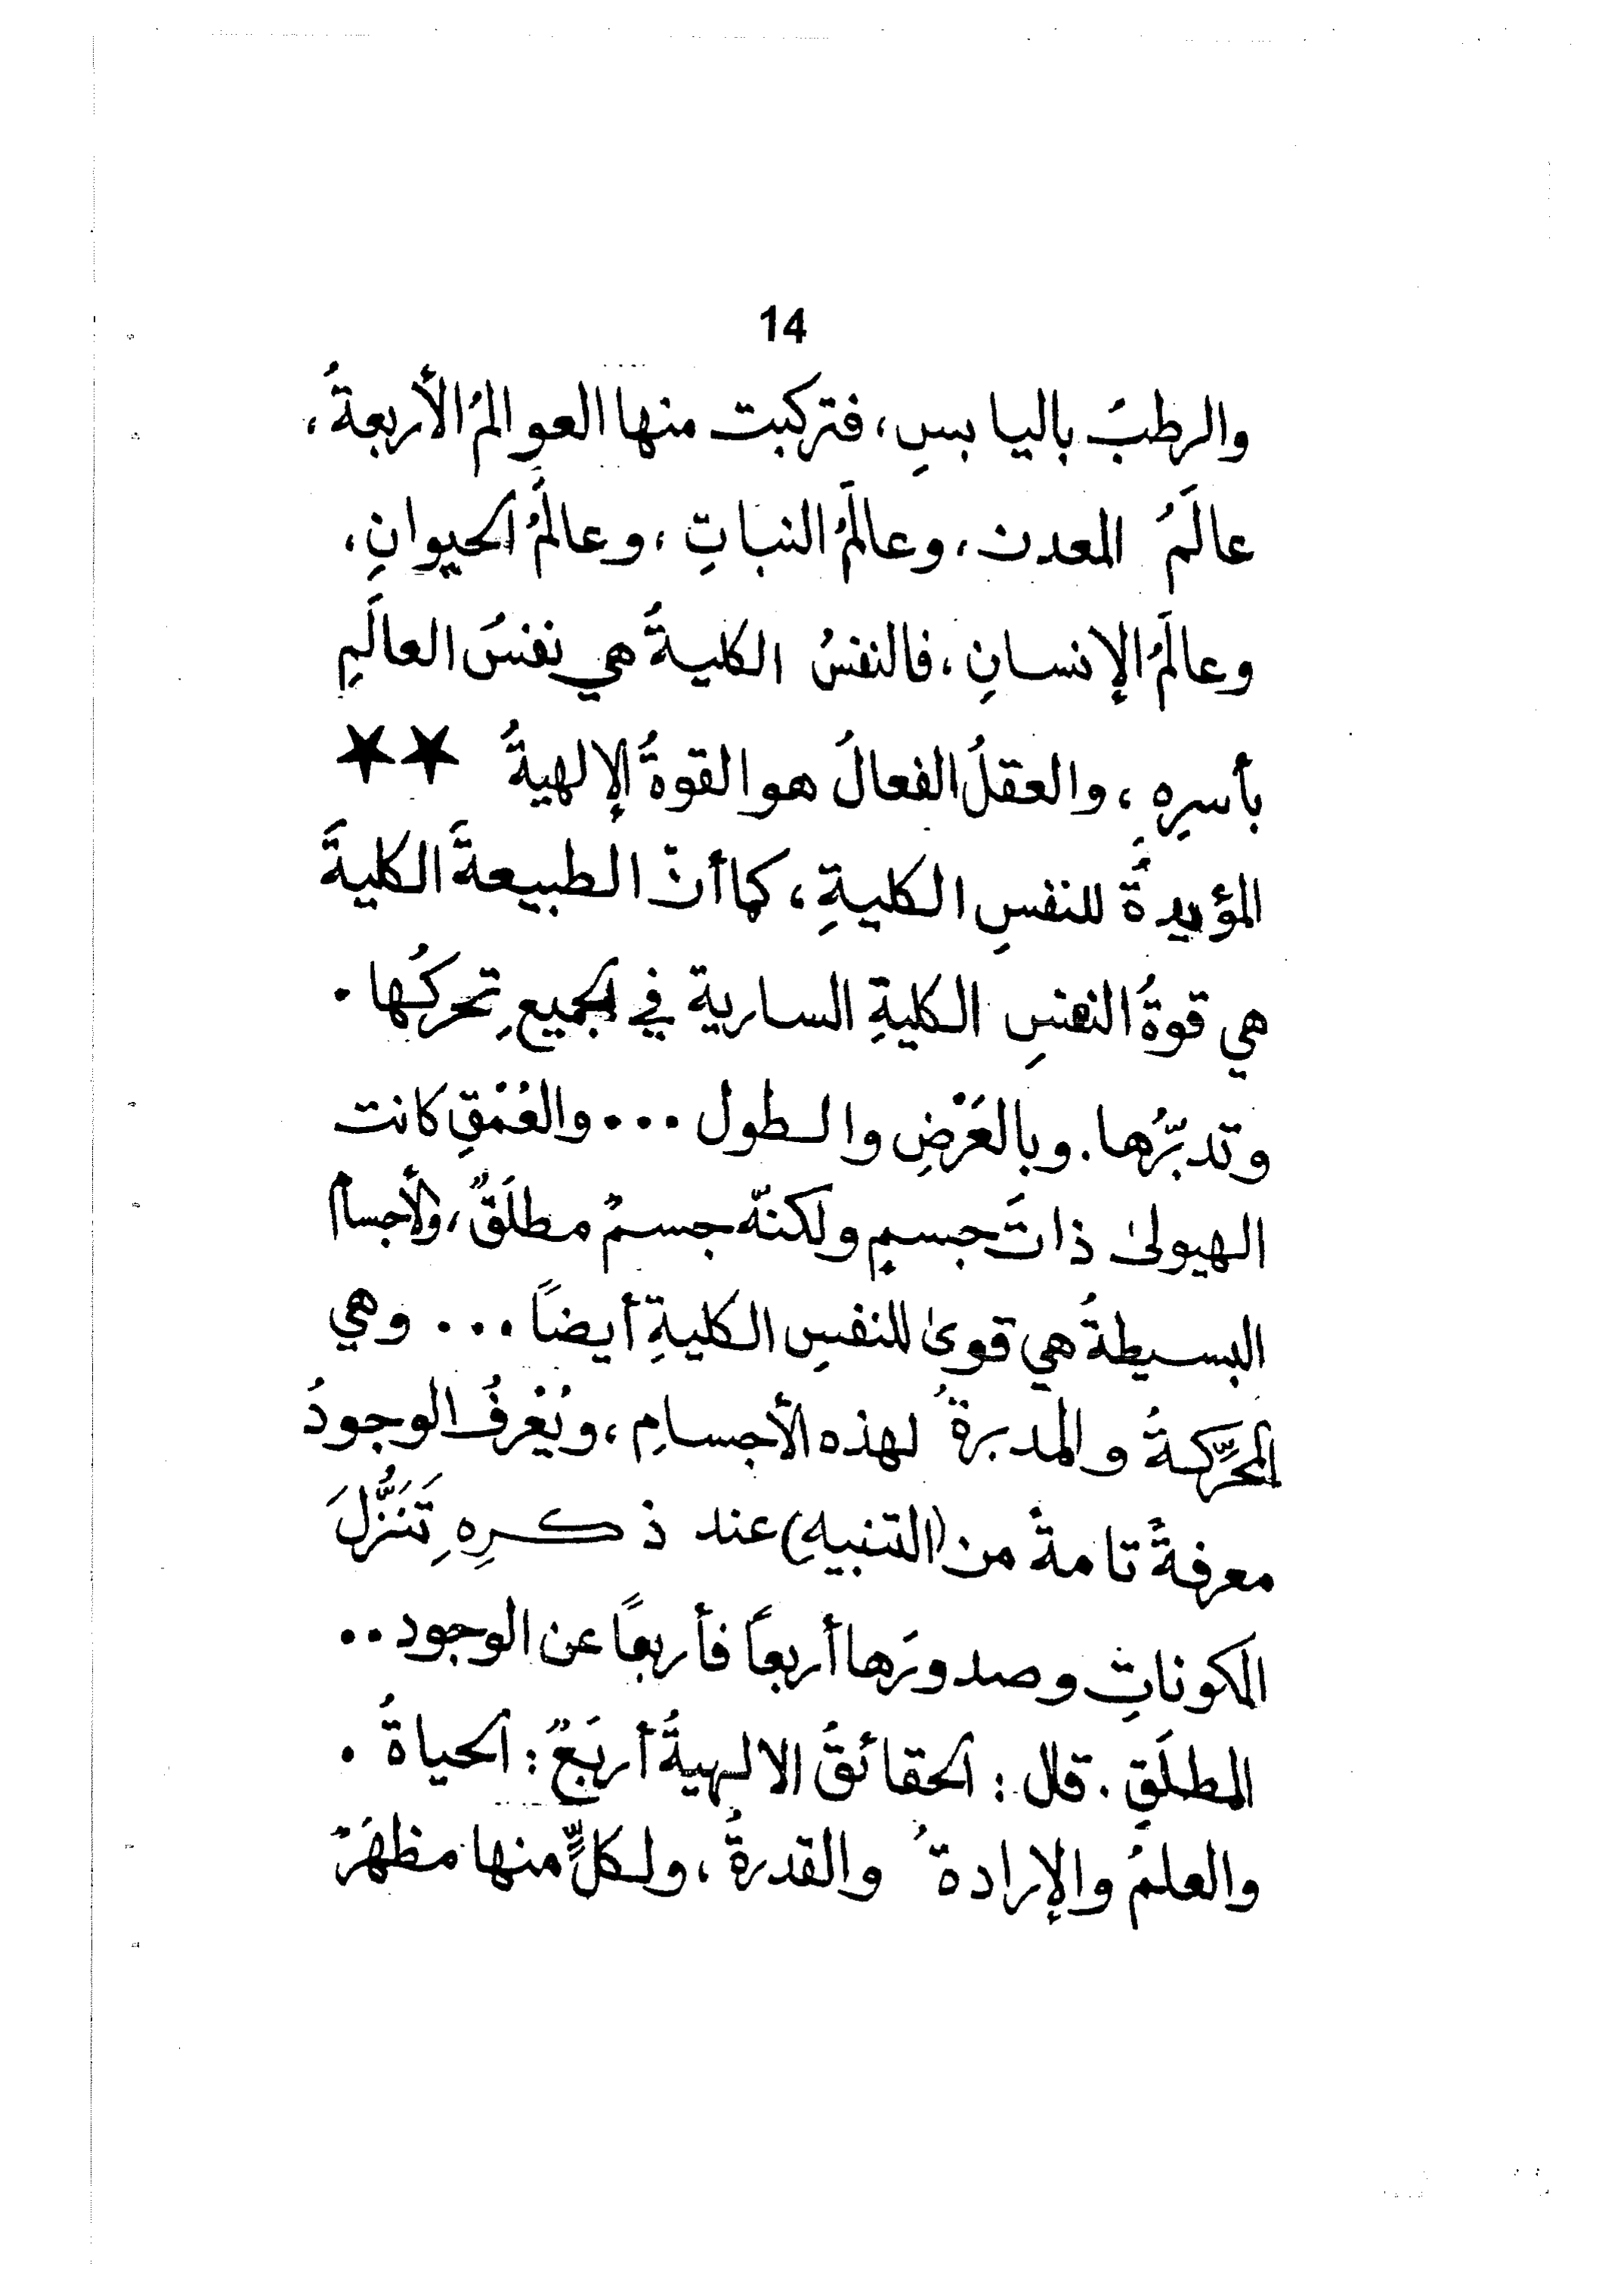 14
والرطبُ باليابسِ، فتركبت منها العوالمُ الأربعةُ،
عالَمُ المعدن، وعالَمُ النباتِ، وعالَمُ الحيوانِ،
وعالَمُ الإنسانِ، فالنفسُ الكليةُ هي نفسُ العالَمِ
بأسرِهِ، والعقلُ الفعالُ هو القوةُ الإلهيةُ ★★
المؤيدةُ للنفسِ الكليةِ، كما أنّ الطبيعةَ الكليةَ
هي قوةُ النفسِ الكليةِ السارية في الجميعِ تحركُها.
وتدبّرُها. وبالعَرْضِ والطول... والعُمْقِ كانت
الهيولىٰ ذاتَ جسمٍ ولكنّه جسمٌ مطلَقٌ، والأجسام
البسيطةُ هي قوىٰ للنفسِ الكليةِ أيضاً... وهي
المحرِّكةُ والمدبرةُ لهذه الأجسامِ، ويُعْرفُ الوجودُ
معرفةً تامةً من (التنبيهِ) عند ذكرِهِ تَنَزُّلَ
المكوناتِ وصدورَها أربعاً فأربعاً عن الوجود..
المطلَقِ. قال: الحقائقُ الالهيةُ أربَعٌ: الحياةُ.
والعلمُ والإرادةُ والقدرةُ، ولكلٍّ منها مظهَرٌ